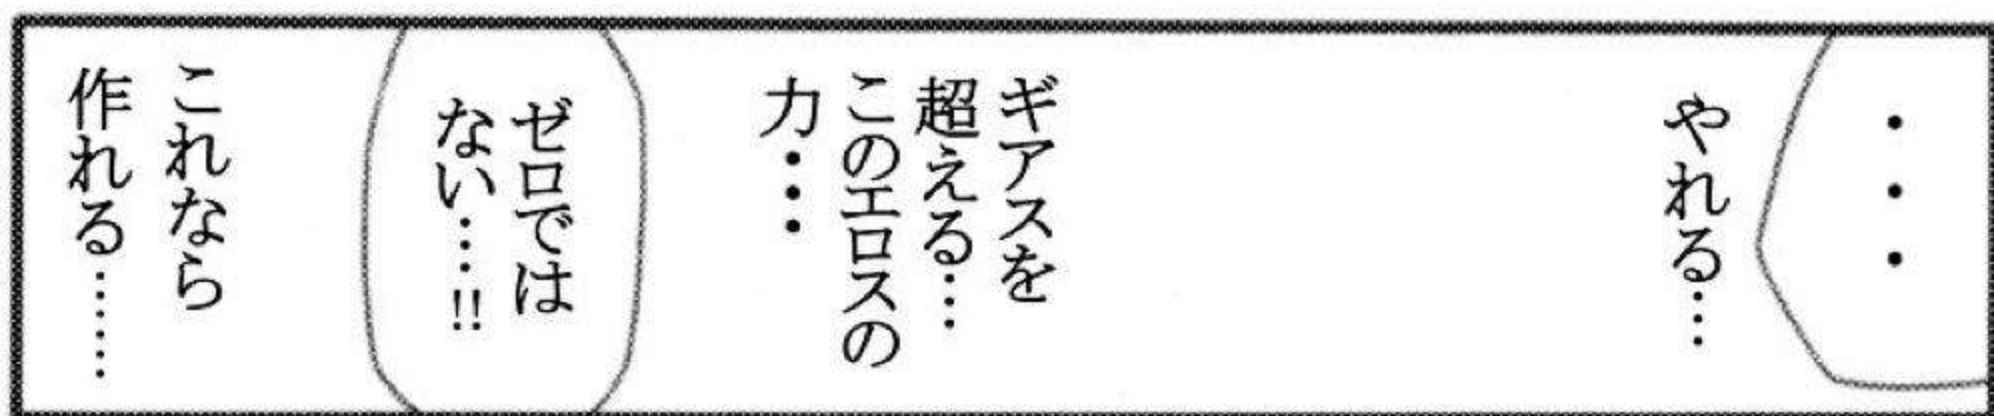 ・・・
やれる…
ギアスを
超える…
このエロスの
力・・・
ゼロでは
ない…‼
これなら
作れる……